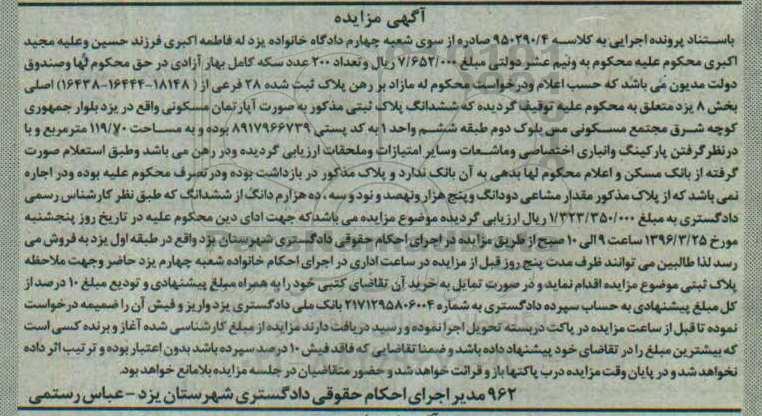 آگهی مزایده
باستناد پرونده اجرایی به کلاسه ۹۵۰۲۹۰/۴ صادره از سوی شعبه چهارم دادگاه خانواده یزد له فاطمه اکبری فرزند حسین وعلیه مجید
اکبری محکوم علیه محکوم به ونیم عشر دولتی مبلغ ۷/۶۵۲/۰۰۰ ریال وتعداد ۲۰۰ عدد سکه کامل بهار آزادی در حق محکوم لها وصندوق
دولت مدیون می باشد که حسب اعلام ودرخواست محکوم له مازاد بر رهن پلاک ثبت شده ۲۸ فرعی از (۱۸۱۴۸-۱۶۴۴۴-۱۶۴۳۸) اصلی
بخش ۸ یزد متعلق به محکوم علیه توقیف گردیده که ششدانگ پلاک ثبتی مذکور به صورت آپارتمان مسکونی واقع در یزد بلوار جمهوری
کوچه شرق مجتمع مسکونی مس بلوک دوم طبقه ششم واحد ۱ به کد پستی ۸۹۱۷۹۶۶۷۳۹ بوده و به مساحت ۱۱۹/۷۰ مترمربع و با
درنظر گرفتن پارکینگ وانباری اختصاصی وماشعات وسایر امتیازات وملحقات ارزیابی گردیده ودر رهن می باشد وطبق استعلام صورت
گرفته از بانک مسکن و اعلام محکوم لها بدهی به آن بانک ندارد و پلاک مذکور در بازداشت بوده ودر تصرف محکوم علیه بوده ودر اجاره
نمی باشد که از پلاک مذکور مقدار مشاعی دودانگ و پنج هزار ونهصد و نود و سه ، ده هزارم دانگ از ششدانگ که طبق نظر کارشناس رسمی
دادگستری به مبلغ ۱/۳۲۳/۳۵۰/۰۰۰ ریال ارزیابی گردیده موضوع مزایده می باشدکه جهت ادای دین محکوم علیه در تاریخ روز پنجشنبه
مورخ ۱۳۹۶/۳/۲۵ ساعت ۹ الی ۱۰ صبح از طریق مزایده در اجرای احکام حقوقی دادگستری شهرستان یزد واقع در طبقه اول یزد به فروش می
رسد لذا طالبین می توانند ظرف مدت پنج روز قبل از مزایده در ساعت اداری در اجرای احکام خانواده شعبه چهارم یزد حاضر وجهت ملاحظه
پلاک ثبتی موضوع مزایده اقدام نماید و در صورت تمایل به خرید آن تقاضای کتبی خود را به همراه مبلغ پیشنهادی و تودیع مبلغ ۱۰ درصد از
کل مبلغ پیشنهادی به حساب سپرده دادگستری به شماره ۲۱۷۱۲۹۵۸۰۶۰۰۴ بانک ملی دادگستری یزد واریز و فیش آن را ضمیمه درخواست
نموده تا قبل از ساعت مزایده در پاکت دربسته تحویل اجرا نموده و رسید دریافت دارند مزایده از مبلغ کارشناسی شده آغاز و برنده کسی است
که بیشترین مبلغ را در تقاضای خود پیشنهاد داده باشد و ضمنا تقاضایی که فاقد فیش ۱۰ درصد سپرده باشد بدون اعتبار بوده و ترتیب اثر داده
نخواهد شد و در پایان وقت مزایده درب پاکتها باز و قرائت خواهد شد و حضور متقاضیان در جلسه مزایده بلامانع خواهد بود.
۹۶۲ مدیر اجرای احکام حقوقی دادگستری شهرستان یزد - عباس رستمی